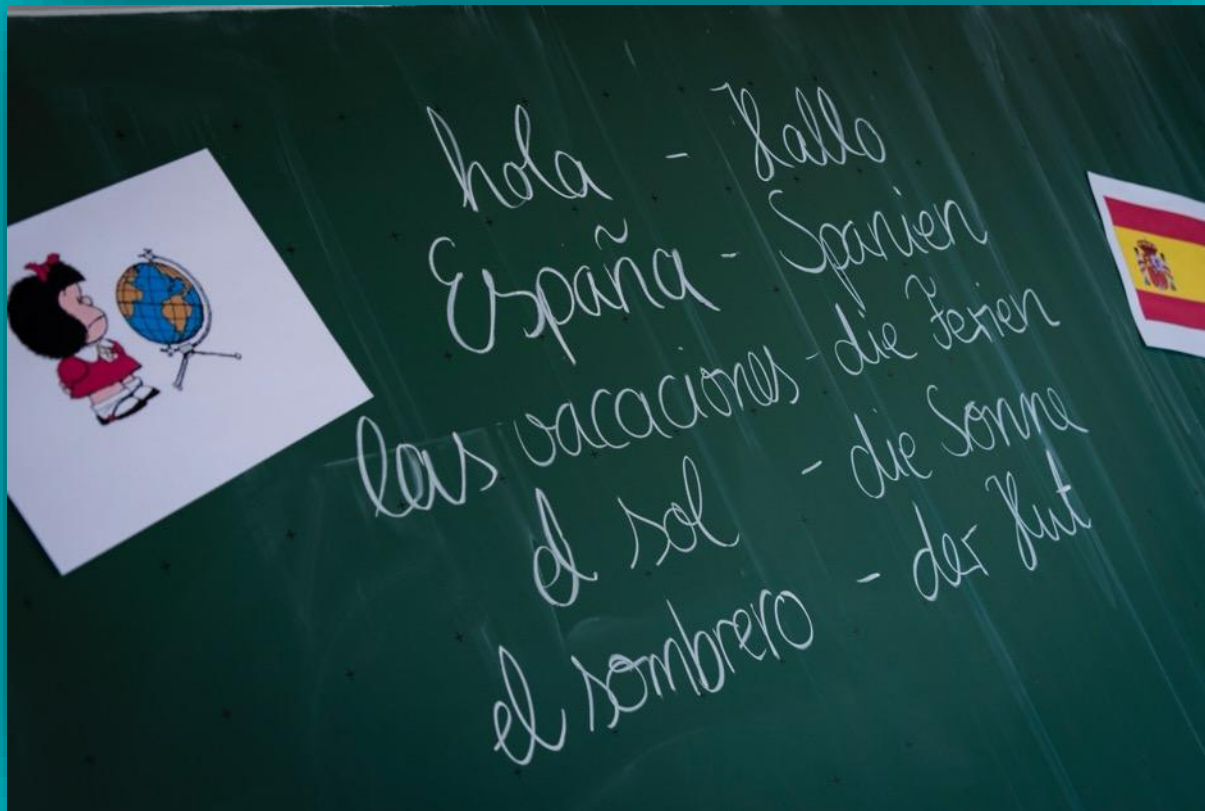 hola - Hallo
España - Spanien
las vacaciones - die Ferien
el sol - die Sonne
el sombrero - der Hut